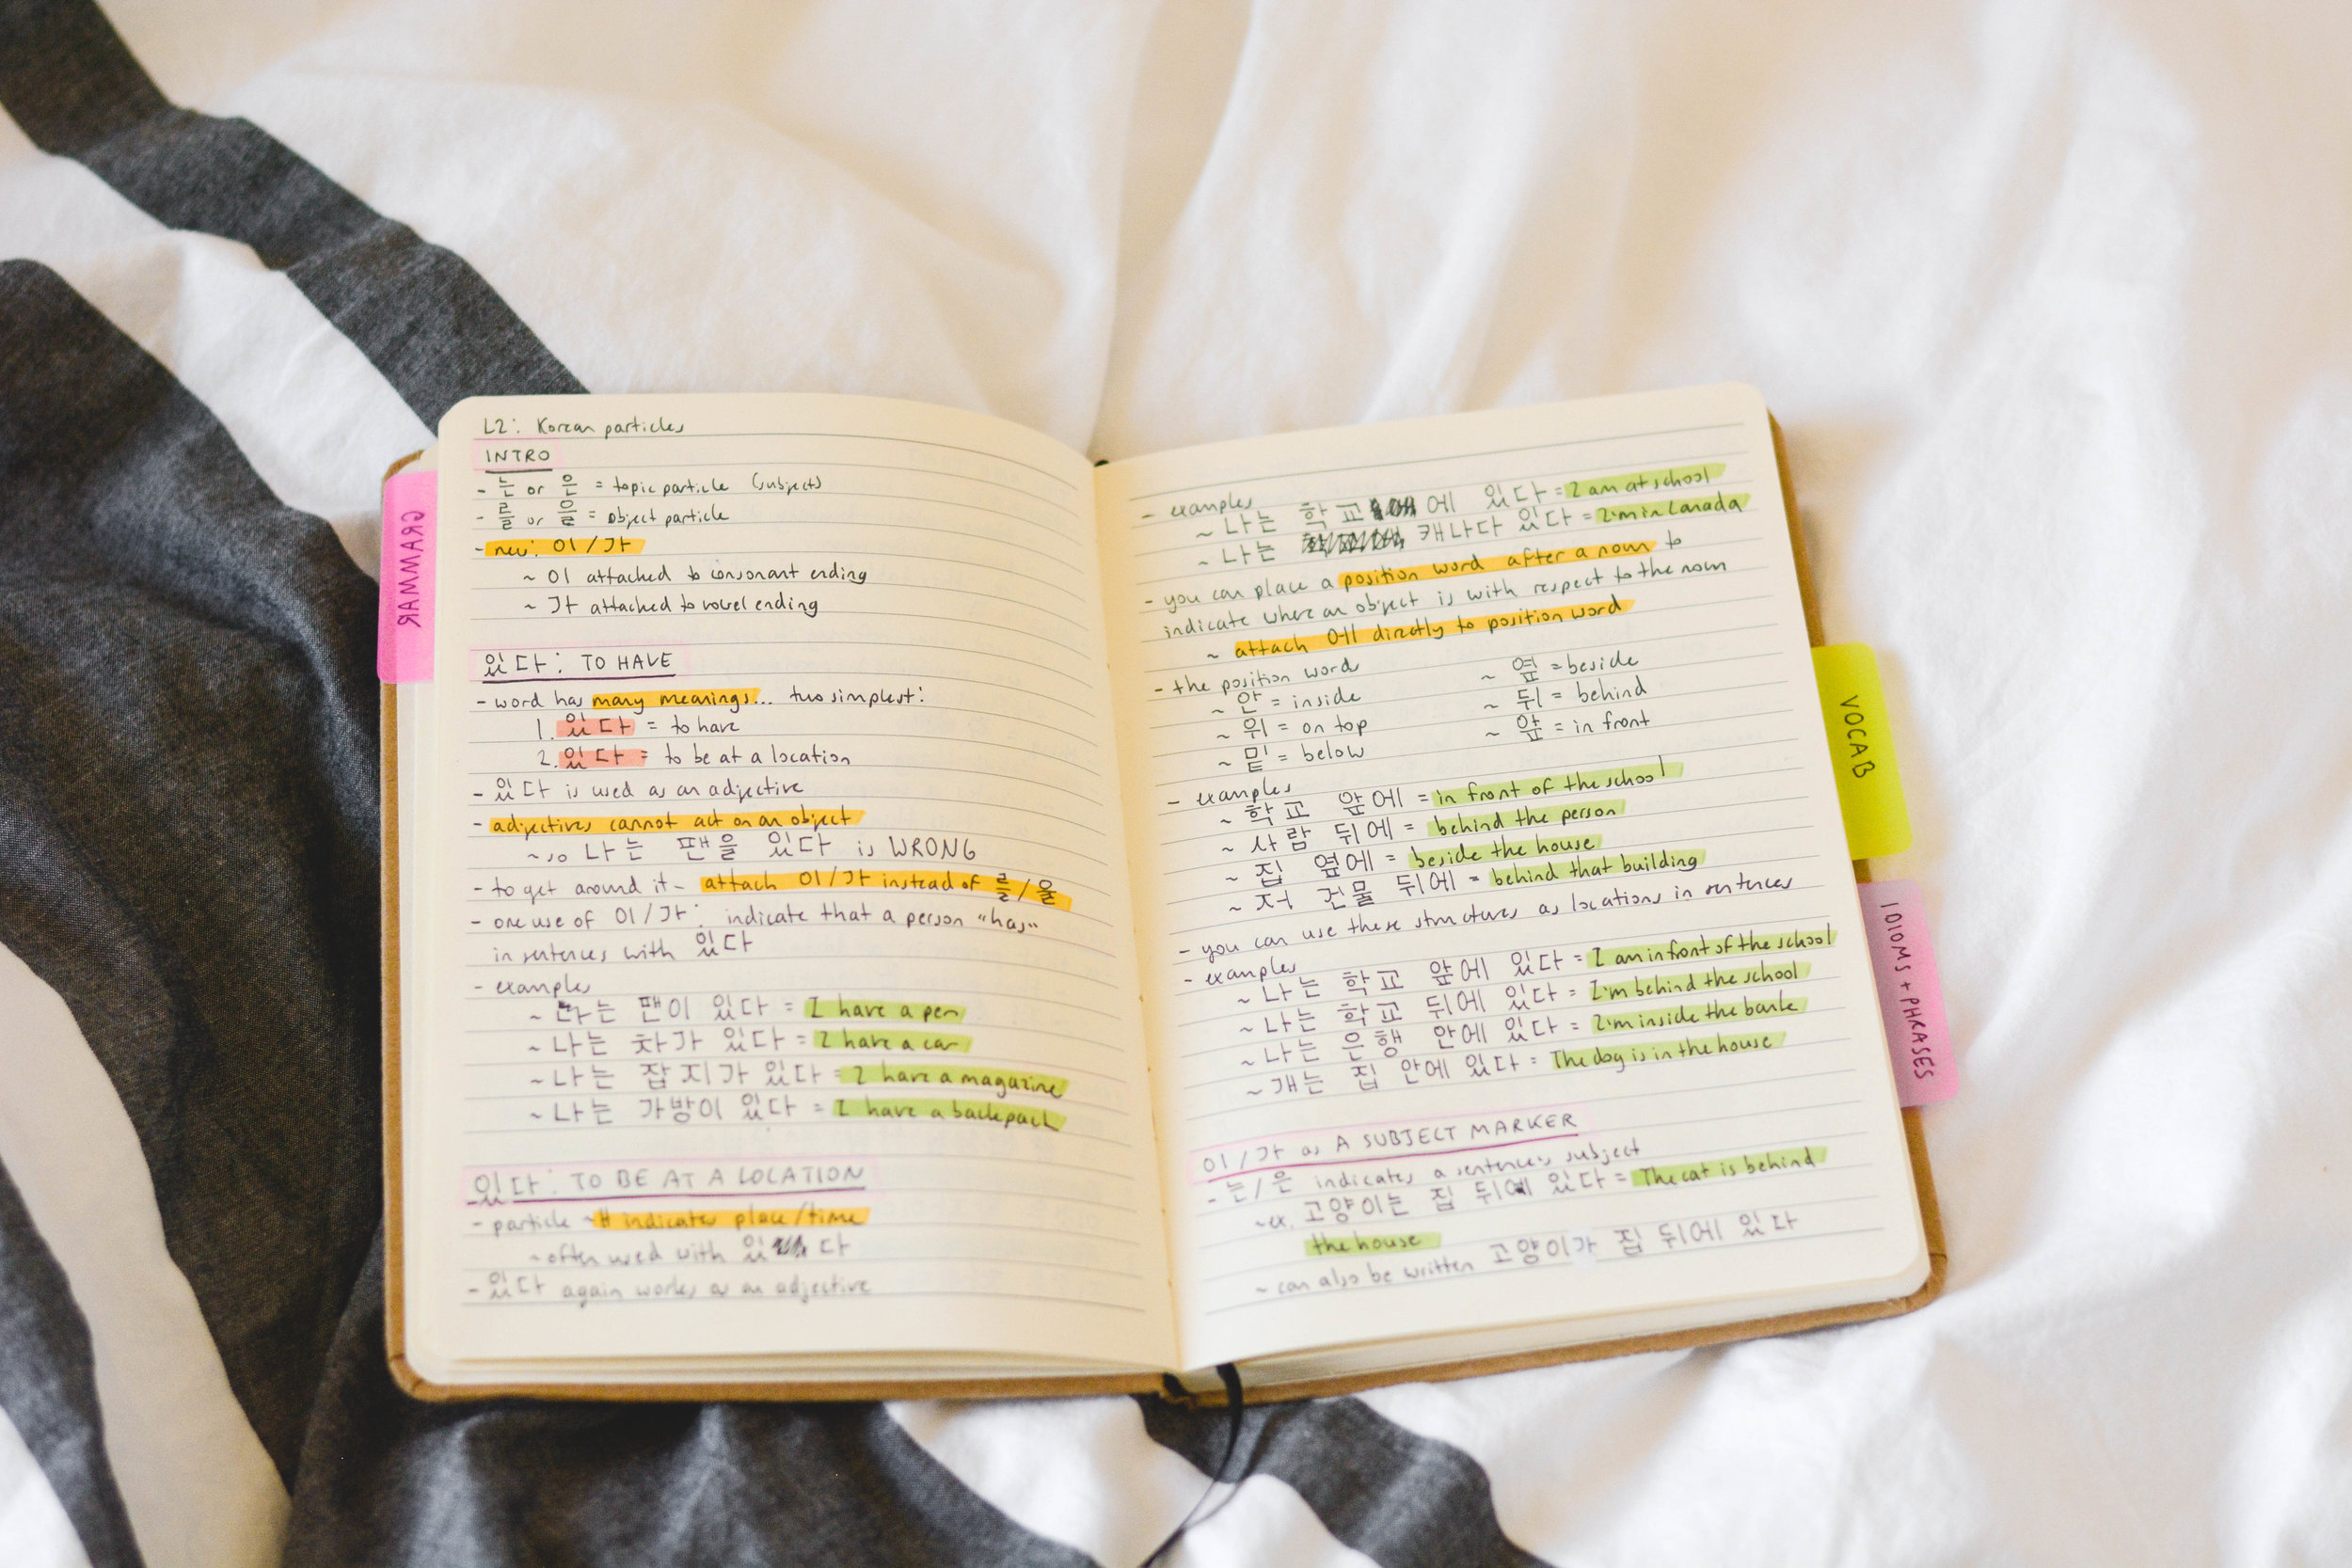 GRAMMAR
L2: Korean particles
INTRO
- 는 or 은 = topic particle (subject)
- 를 or 을 = object particle
- new: 이/가
~ 이 attached to consonant ending
~ 가 attached to vowel ending
있다: TO HAVE
- word has many meanings... two simplest:
1. 있다 = to have
2. 있다 = to be at a location
- 있다 is used as an adjective
- adjectives cannot act on an object
~ so 나는 팬을 있다 is WRONG
- to get around it - attach 이/가 instead of 를/을
- one use of 이/가: indicate that a person "has"
in sentences with 있다
- examples
~ 나는 팬이 있다 = I have a pen
~ 나는 차가 있다 = I have a car
~ 나는 잡지가 있다 = I have a magazine
~ 나는 가방이 있다 = I have a backpack
있다: TO BE AT A LOCATION
- particle ~에 indicates place/time
~ often used with 있다
- 있다 again works as an adjective
- examples
~ 나는 학교에 있다 = I am at school
~ 나는 캐나다 있다 = I'm in Canada
- you can place a position word after a noun to
indicate where an object is with respect to the noun
~ attach 에 directly to position word
- the position word
~ 안 = inside ~ 옆 = beside
~ 위 = on top ~ 뒤 = behind
~ 밑 = below ~ 앞 = in front
- examples
~ 학교 앞에 = in front of the school
~ 사람 뒤에 = behind the person
~ 집 옆에 = beside the house
~ 저 건물 뒤에 = behind that building
- you can use these structures as locations in sentences
- examples
~ 나는 학교 앞에 있다 = I am in front of the school
~ 나는 학교 뒤에 있다 = I'm behind the school
~ 나는 은행 안에 있다 = I'm inside the bank
~ 개는 집 안에 있다 = The dog is in the house
이/가 as A SUBJECT MARKER
- 는/은 indicates a sentences subject
~ ex. 고양이는 집 뒤에 있다 = The cat is behind
the house
~ can also be written 고양이가 집 뒤에 있다
VOCAB
IDIOMS + PHRASES